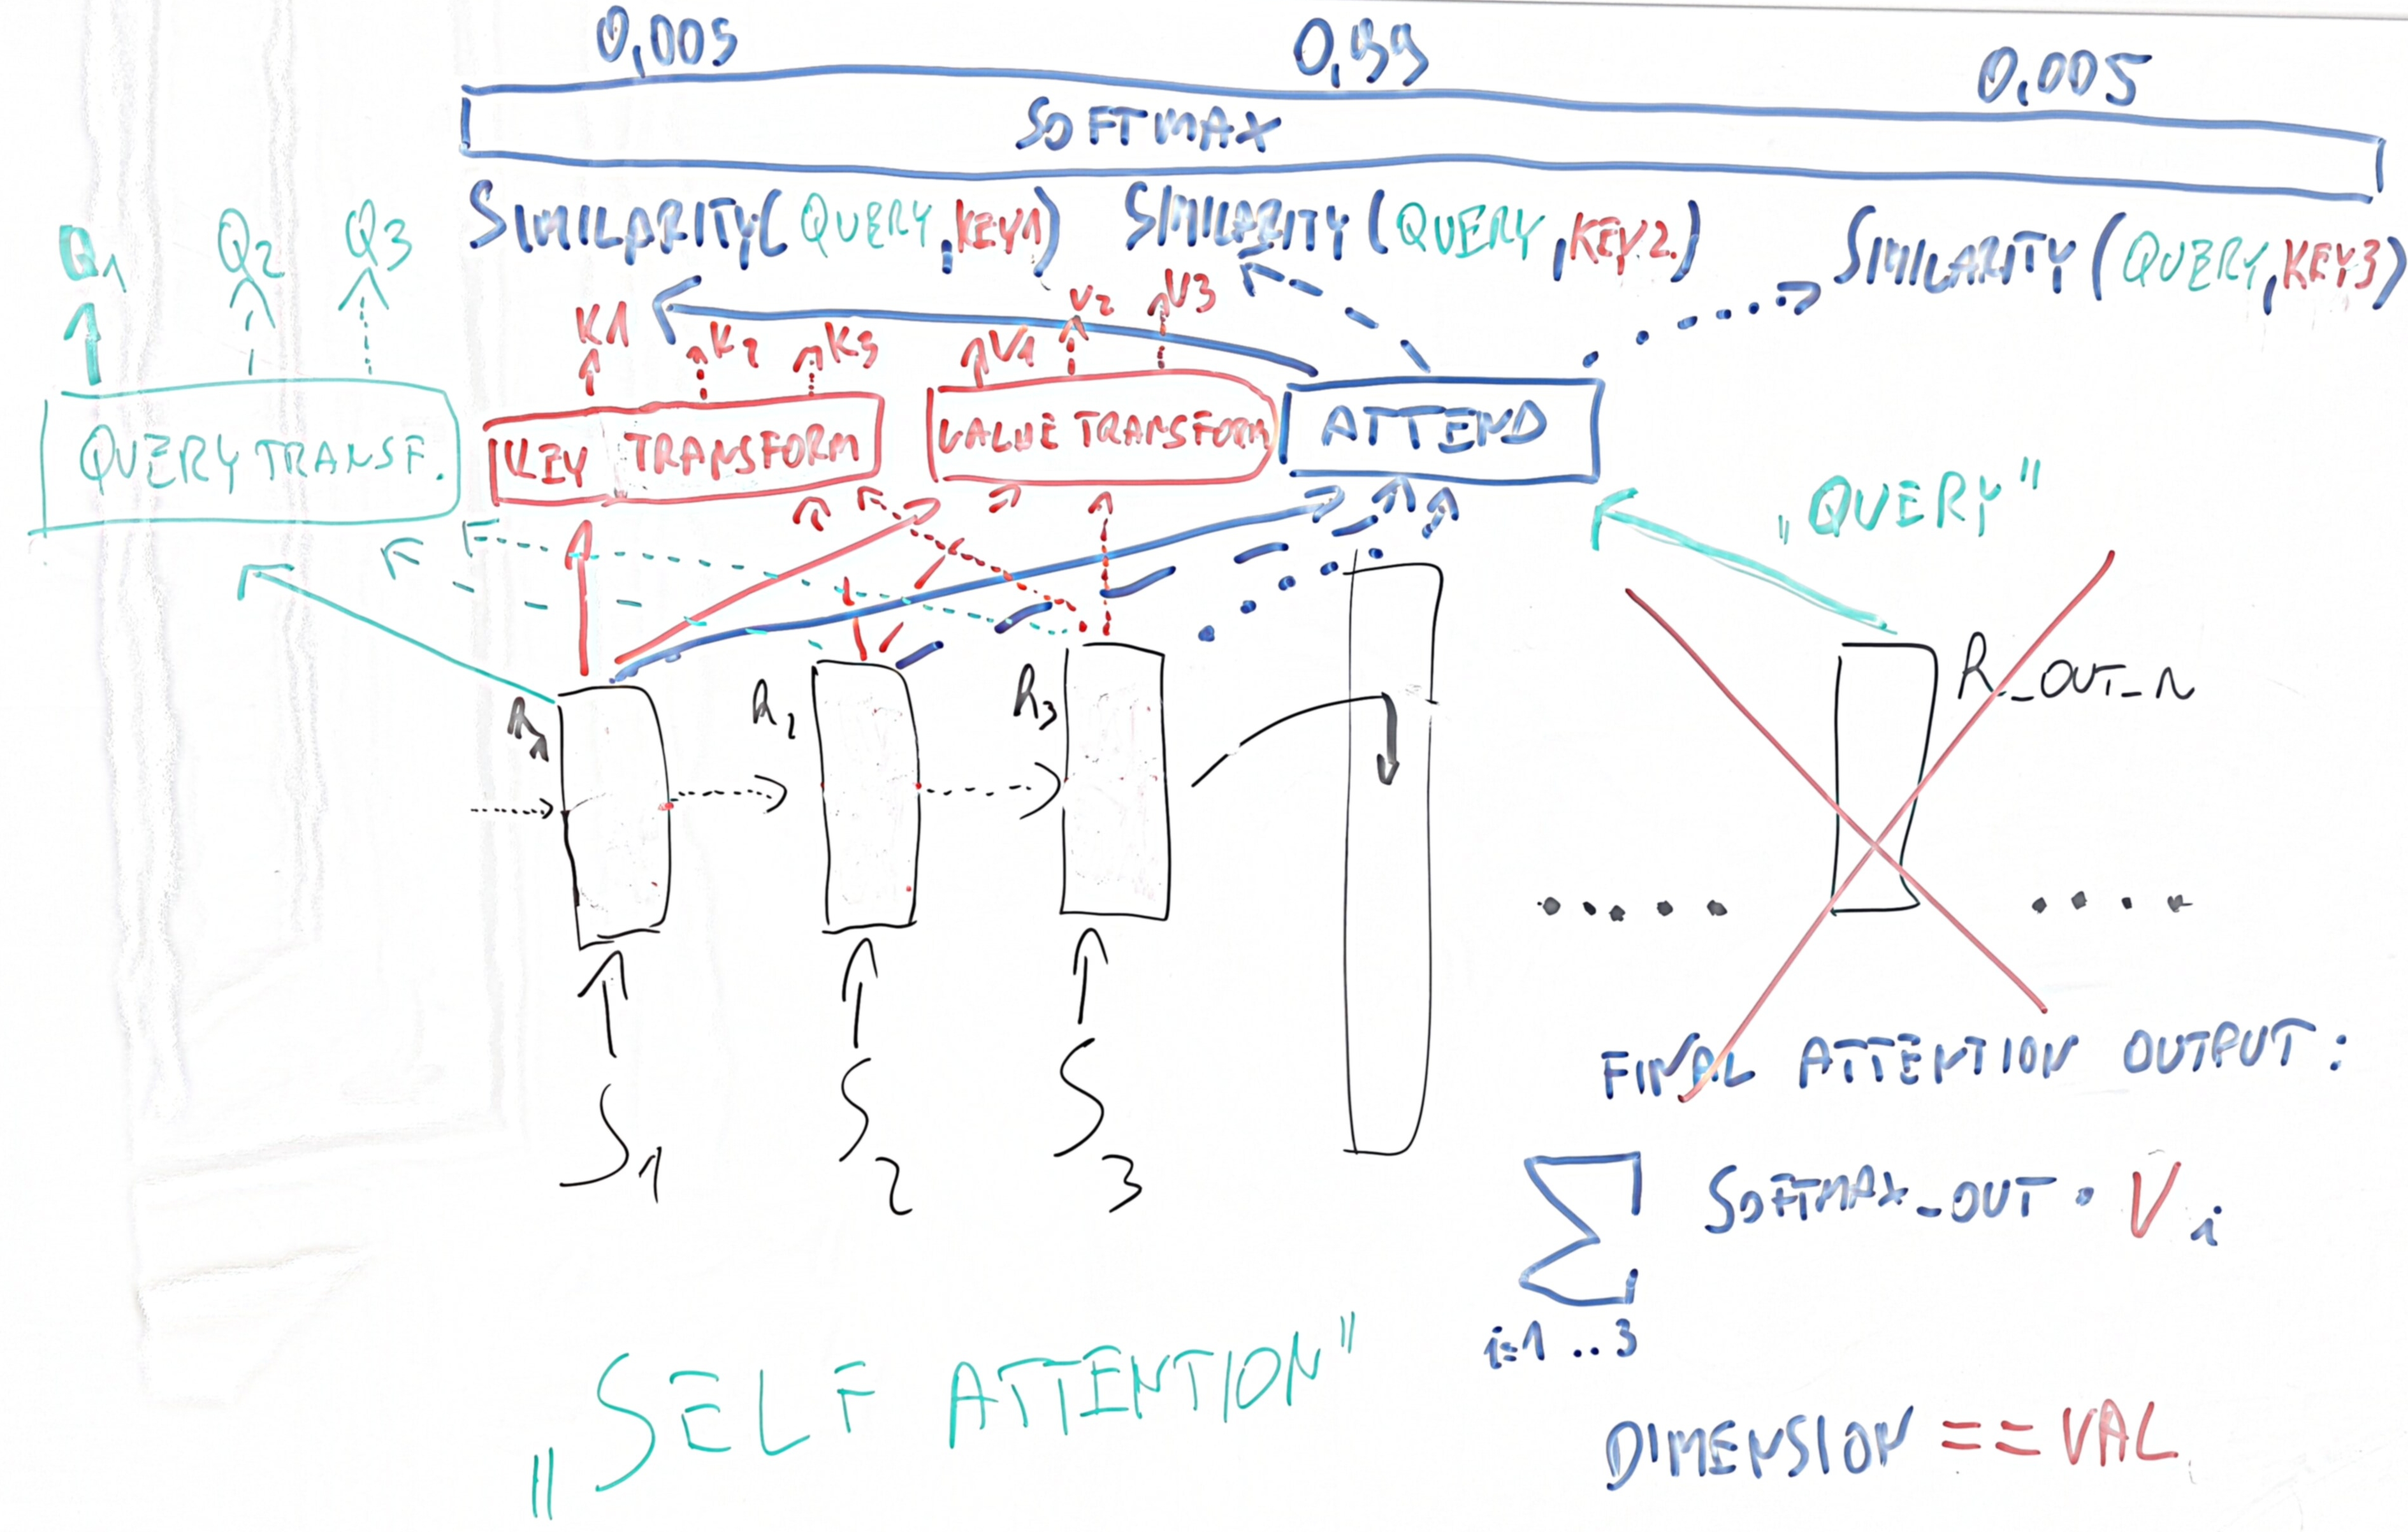 0,005 0,99 0,005
SOFTMAX
SIMILARITY( QUERY, KEY1) SIMILARITY ( QUERY, KEY2.) SIMILARITY ( QUERY, KEY3)
Q1 Q2 Q3
K1 K2 K3 V1 V2 V3
QUERY TRANSF. KEY TRANSFORM VALUE TRANSFORM ATTEND
„QUERY"
R1 R2 R3 R_OUT_N
S1 S2 S3
FINAL ATTENTION OUTPUT:
∑ SOFTMAX_OUT • Vi
i=1 ..3
„SELF ATTENTION"
DIMENSION == VAL